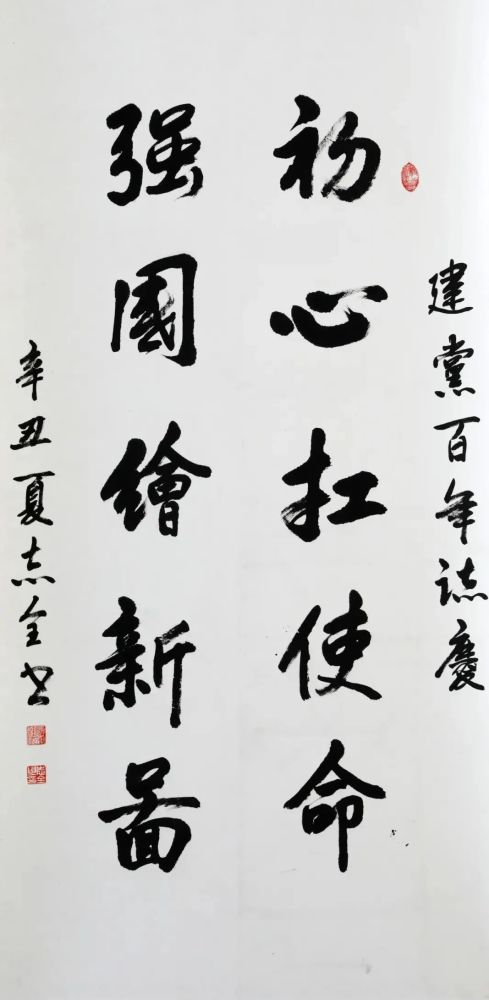 建黨百年誌慶
初心扛使命
强國繪新啚
辛丑夏志全书